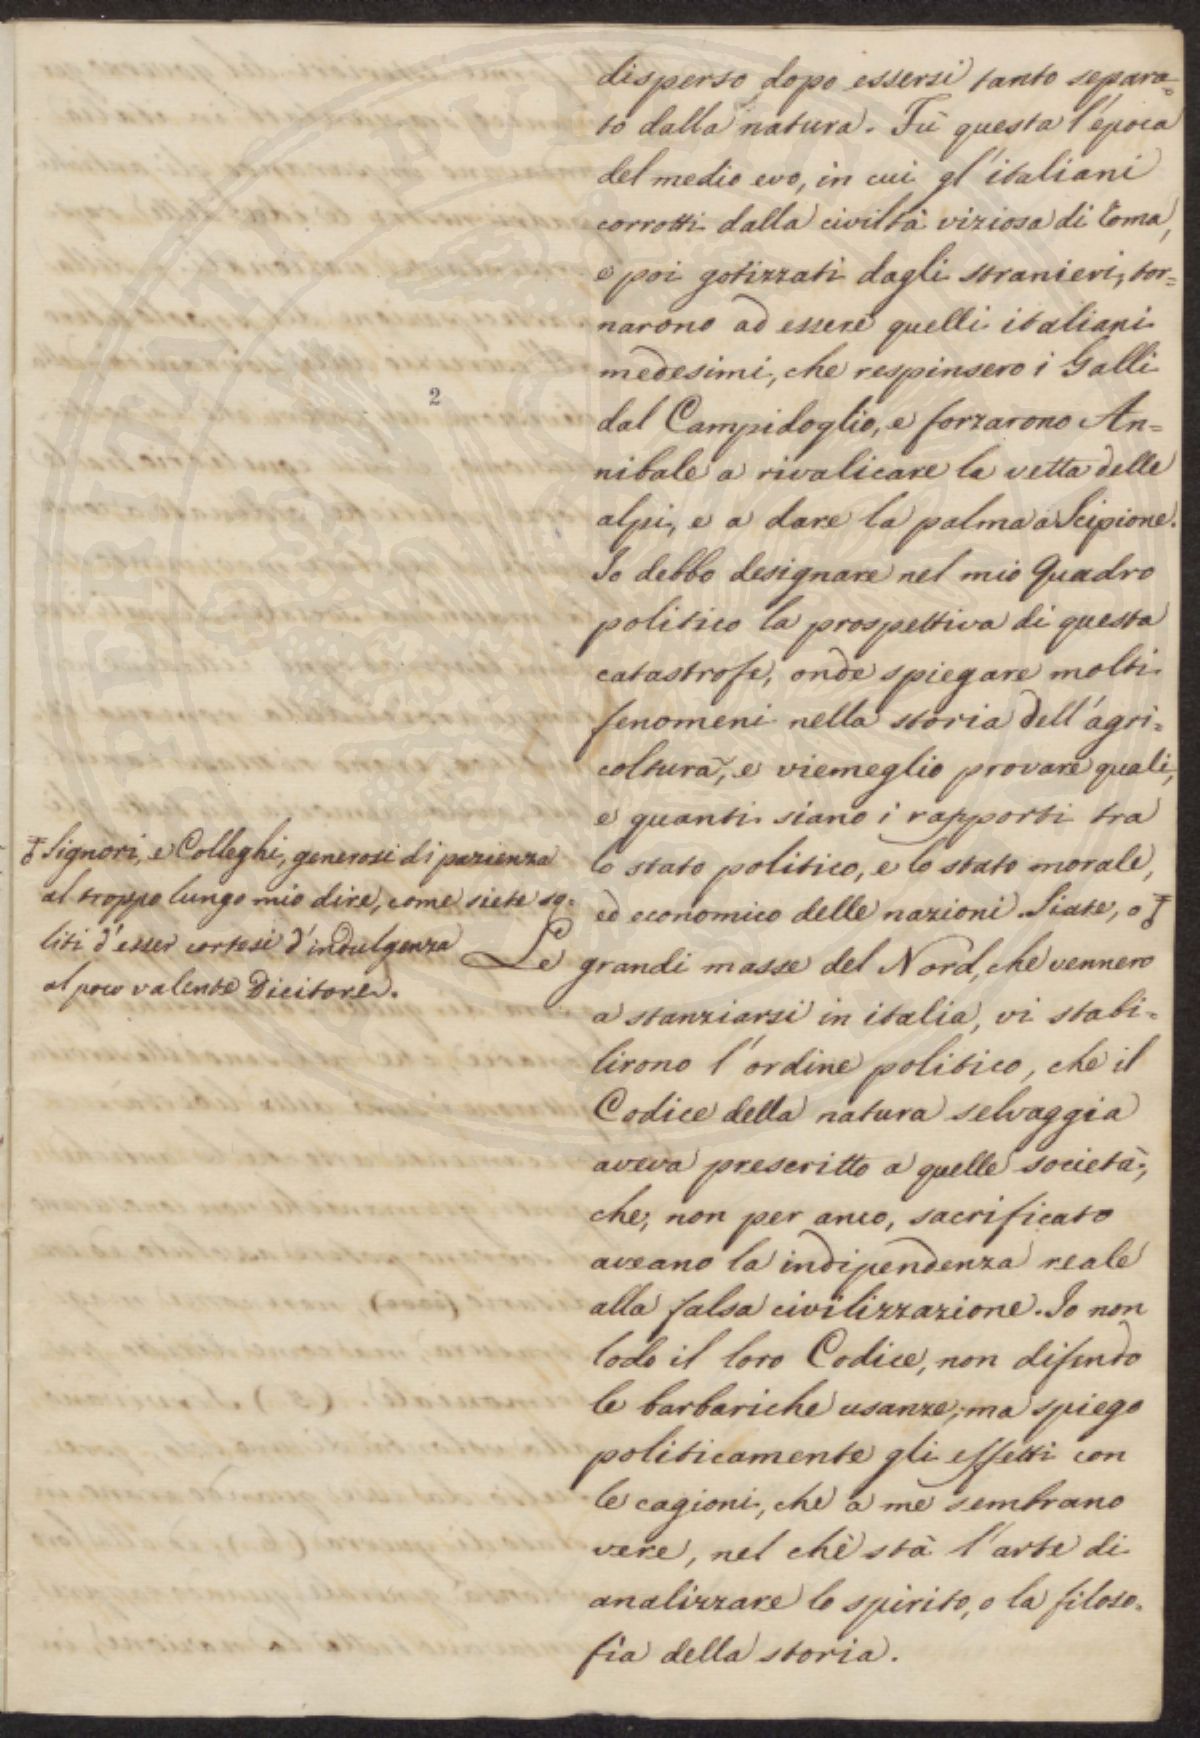 disperso dopo essersi tanto separa=
to dalla natura. Fù questa l'época
del medio evo, in cui gl'italiani
corrotti dalla civiltà viziosa di Roma,
e poi gotizzati dagli stranieri, tor=
narono ad essere quelli italiani
medesimi, che respinsero i Galli
dal Campidoglio, e forzarono An=
nibale a rivalicare la vetta delle
alpi, e a dare la palma a Scipione.
Io debbo designare nel mio Quadro
politico la prospettiva di questa
catastrofe, onde spiegare molti
fenomeni nella storia dell'agri=
coltura, e viemeglio provare quali,
e quanti siano i rapporti tra
lo stato politico, e lo stato morale,
ed economico delle nazioni. Siate, o
Signori, e Colleghi, generosi di pazienza
al troppo lungo mio dire, come siete so=
liti d'esser cortesi d'indulgenza
al poco valente Dicitore.
Le grandi masse del Nord, che vennero
a stanziarsi in italia, vi stabi=
lirono l'ordine politico, che il
Codice della natura selvaggia
aveva prescritto a quelle società,
che, non per anco, sacrificato
aveano la indipendenza reale
alla falsa civilizzazione. Io non
lodo il loro Codice, non difendo
le barbariche usanze, ma spiego
politicamente gli effetti con
le cagioni, che a me sembrano
vere, nel chè stà l'arte di
analizzare lo spirito, o la filoso=
fia della storia.
2